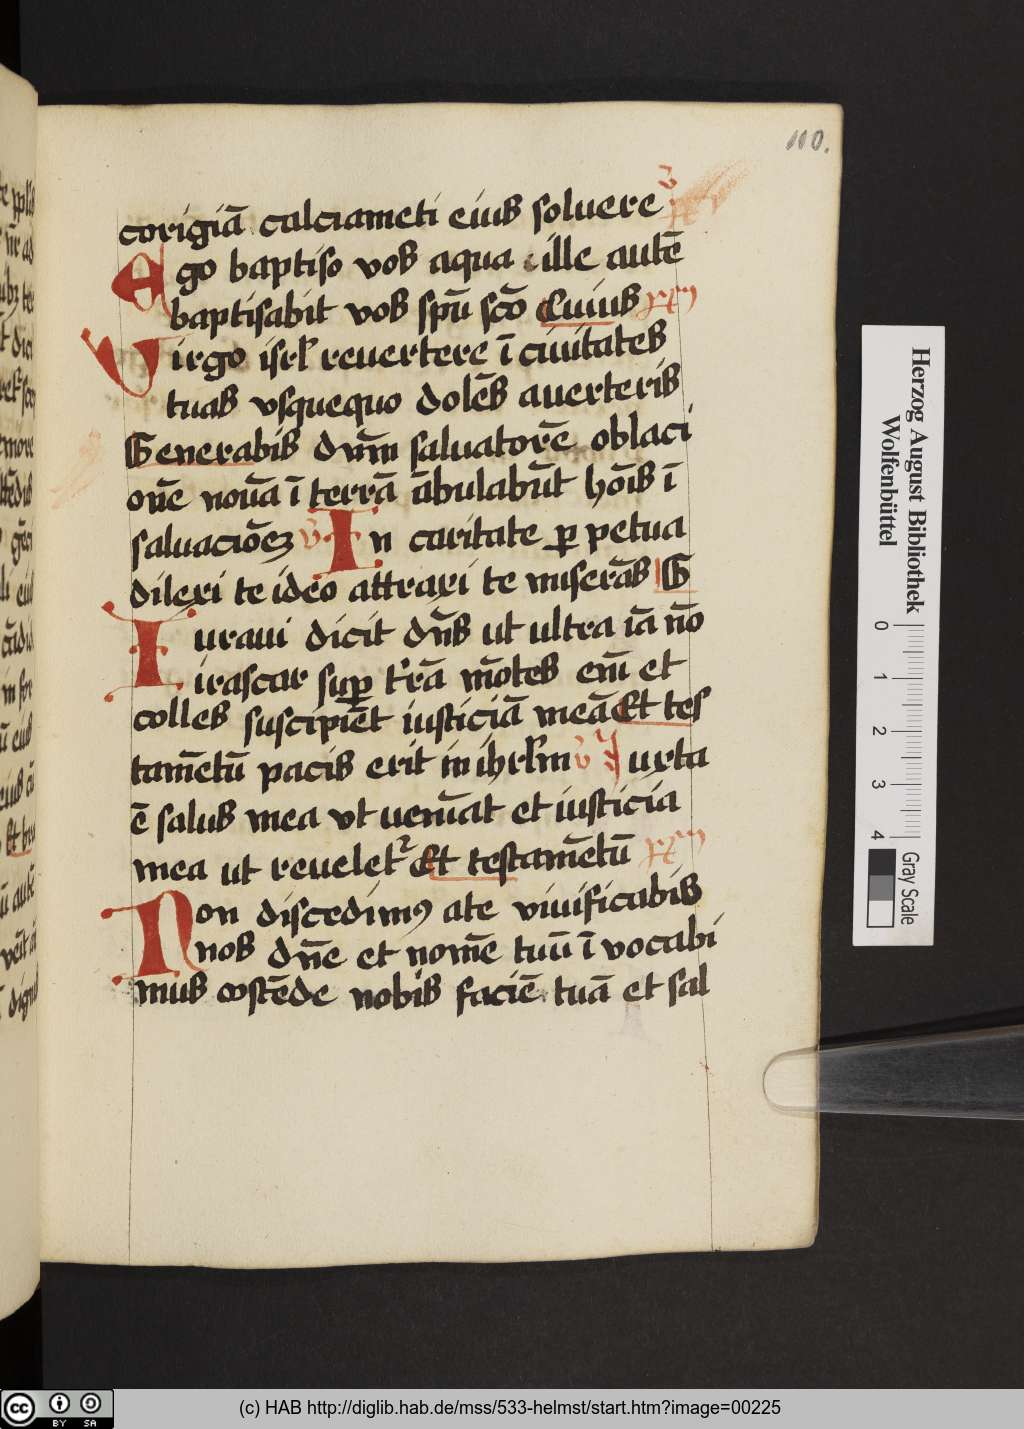 110.
corigiā calciameti eius soluere v̄
Ego baptiso vos aqua ille autē
baptisabit vos spū scō Cuius
Virgo isrl reuertere ī ciuitates
tuas vsquequo dolēs auerteris
Generabis dnm̄ saluatorē oblaci
onē nouā ī terrā ābulabūt hoīs ī
saluacioēz v̄ In caritate perpetua
dilexi te ideo attraxi te miserās G
Iuraui dicit dn̄s ut ultra iā nō
irascar super t'rā mōtes enī et
colles suscipiēt iusticiā meā Et tes
tamētū pacis erit in ihrlm v̄ Iuxta
ē salus mea vt ueniat et iusticia
mea ut reueletr Et testamētū
Non discedimꝰ ate viuificabis
nos dn̄e et nomē tuū ī vocabi
mus oostēde nobis faciē tuā et sal
Herzog August Bibliothek
Wolfenbüttel
0 1 2 3 4
Gray Scale
cc BY SA
(c) HAB http://diglib.hab.de/mss/533-helmst/start.htm?image=00225